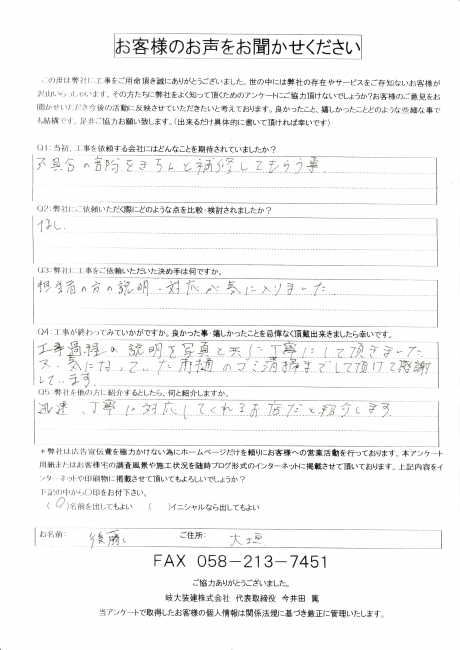 お客様のお声をお聞かせください
この度は弊社に工事をご用命頂き誠にありがとうございました。世の中には弊社の存在やサービスをご存知ないお客様が
沢山いらっしゃいます。その方たちに弊社をよく知って頂くためのアンケートにご協力頂けないでしょうか?お客様のご意見をお
聞かせいただき今後の活動に反映させていただきたいと考えております。良かったこと、嬉しかったことどのような些細な事で
も結構です。是非ご協力お願い致します。(出来るだけ具体的に書いて頂ければ幸いです)
Q1:当初、工事を依頼する会社にはどんなことを期待されていましたか?
不具合の箇所をきちんと補修してもらう事
Q2:弊社にご依頼いただく際にどのような点を比較・検討されましたか?
なし
Q3:弊社に工事をご依頼いただいた決め手は何ですか。
担当者の方の説明・対応が気に入りました
Q4:工事が終わってみていかがですか。良かった事・嬉しかったことを忌憚なく頂戴出来ましたら幸いです。
工事過程の説明を写真と共に丁寧にして頂きました
又、気になっていた雨樋のゴミ清掃までして頂けて感謝
しています。
Q5:弊社を他の方に紹介するとしたら、何と紹介しますか。
迅速、丁寧に対応してくれるお店だと紹介します
*弊社は広告宣伝費を極力かけない為にホームページだけを頼りにお客様への営業活動を行っております。本アンケート
用紙またはお客様宅の調査風景や施工状況を随時ブログ形式のインターネットに掲載させて頂いております。上記内容をイ
ンターネットや印刷物に掲載させて頂いてもよろしいでしょうか?
下記の中から〇印をお付下さい。
(〇)名前を出してもよい ( )イニシャルなら出してもよい
お名前: 後藤 ご住所: 大垣
FAX 058-213-7451
ご協力ありがとうございました。
岐大装建株式会社 代表取締役 今井田 篤
当アンケートで取得したお客様の個人情報は関係法規に基づき厳正に管理いたします。